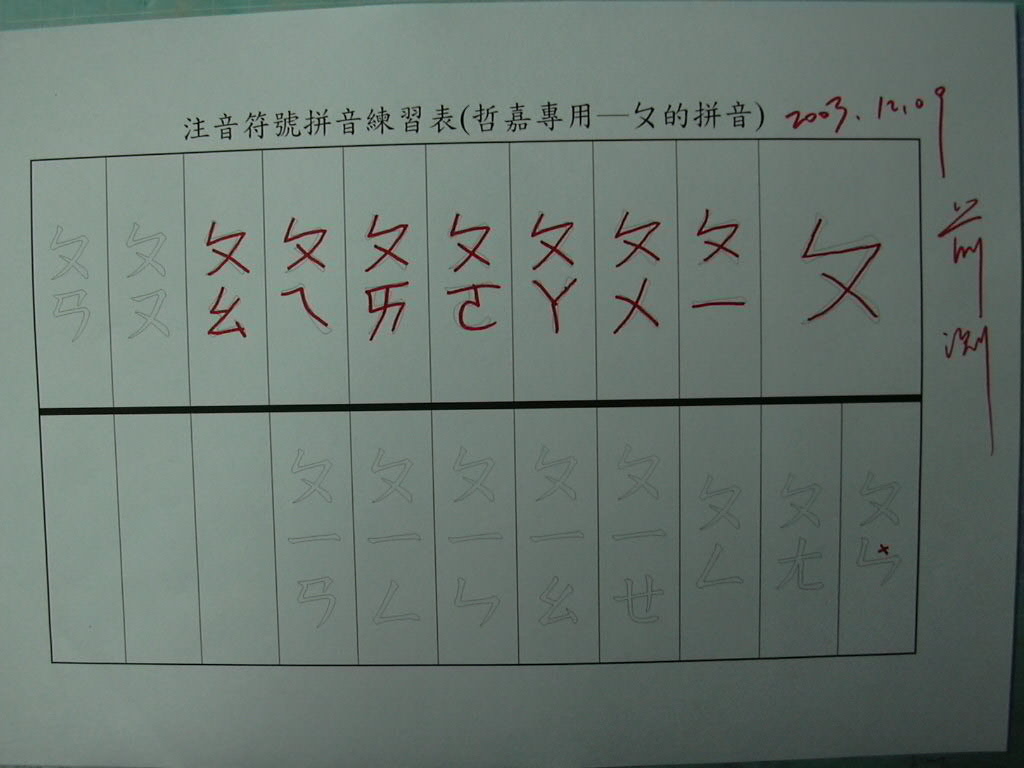 注音符號拼音練習表(哲嘉專用—ㄆ的拼音) 2003.12.09
前測
ㄆ
ㄆㄧ
ㄆㄨ
ㄆㄚ
ㄆㄛ
ㄆㄞ
ㄆㄟ
ㄆㄠ
ㄆㄡ
ㄆㄢ
ㄆㄣ
ㄆㄤ
ㄆㄥ
ㄆㄧㄝ
ㄆㄧㄠ
ㄆㄧㄣ
ㄆㄧㄥ
ㄆㄧㄢ